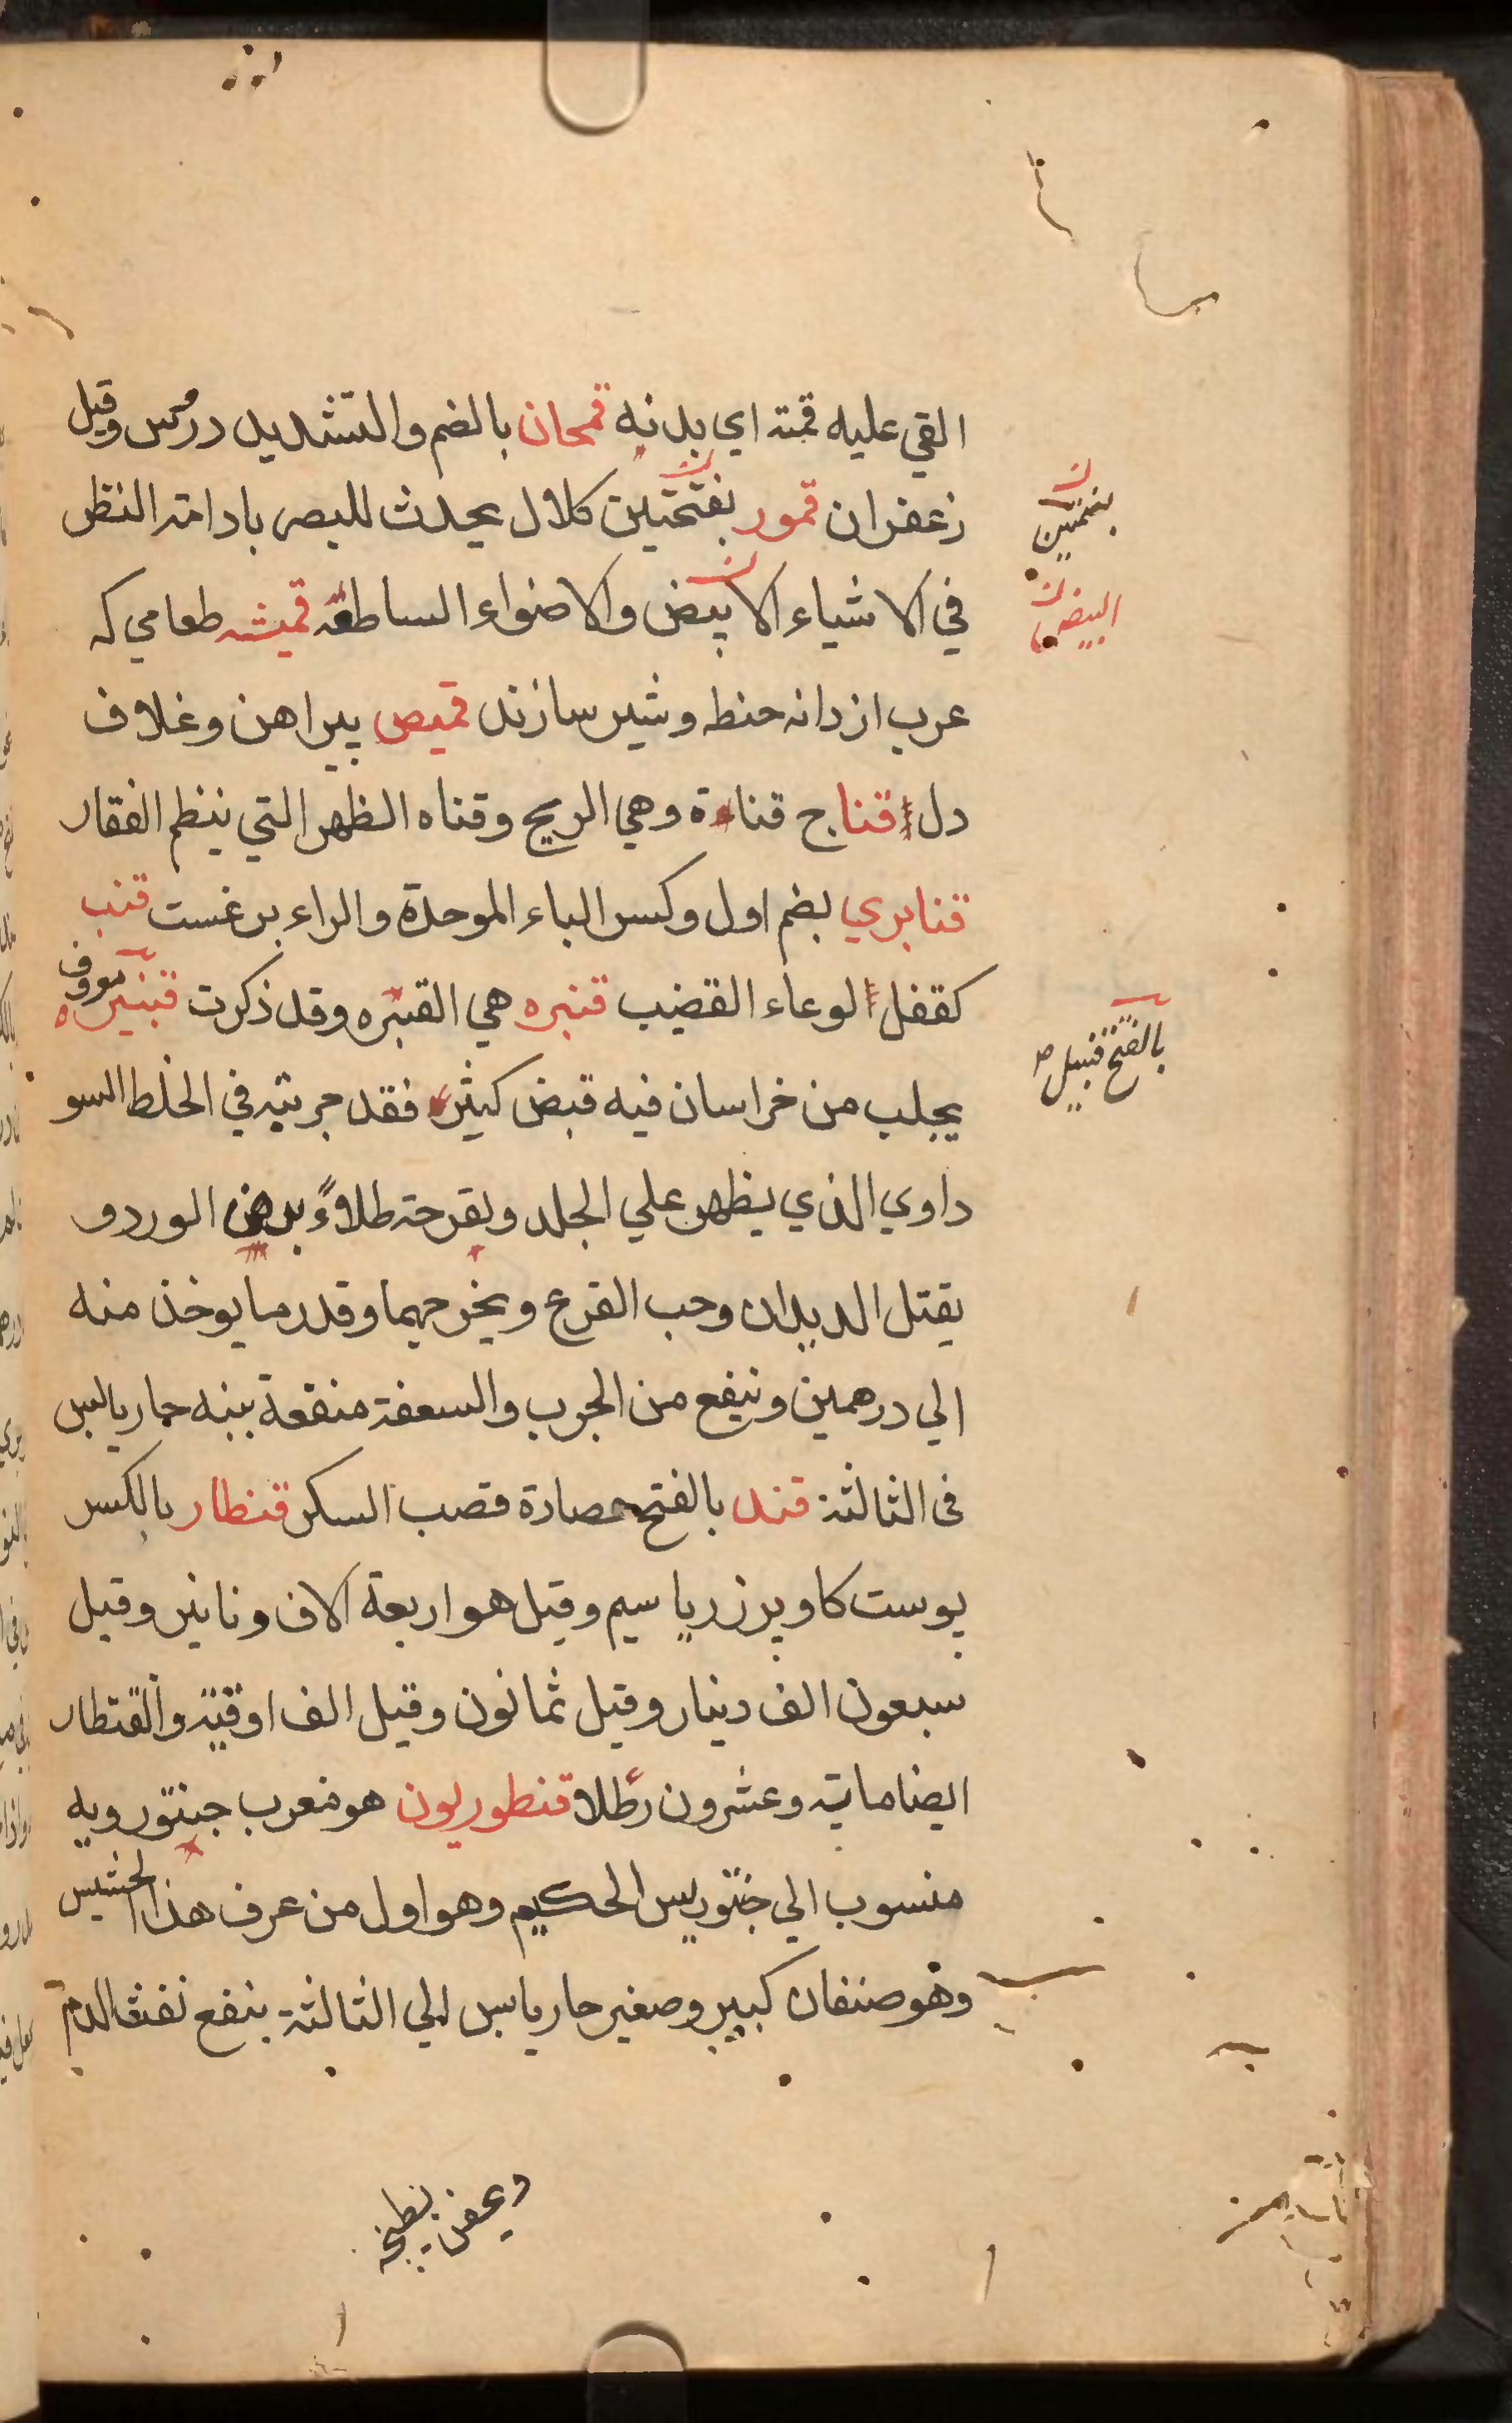 القي عليه قمته اي بدنه قمحان بالضم والتشديد درمس وقيل
زعفران قمور بفتحتين كلال يحدث للبصر بادامة النظر
في الاشياء الابيض والاضواء الساطعة قميشه طعامي كه
عرب از دانه حنطه و شير سازند قميص پيراهن وغلاف
دل قنا ج قناة وهي الريح وقناه الظهر التي ينظم الفقار
قنابري بضم اول وكسر الباء الموحدة والراء برغست قنب
كقفل الوعاء القضيب قنبره هي القبره وقد ذكرت قنبيره معروف
يجلب من خراسان فيه قبض كثير فقد جربته في الخلط السو
داوي الذي يظهر علي الجلد ويقرحه طلاءً بدهن الورد و
يقتل الديدان وحب القرع ويخرجهما وقدر ما يوخذ منه
الي درهمين وينفع من الجرب والسعفة منفعة بينه حار يابس
في الثالثة قند بالفتح عصارة قصب السكر قنطار بالكسر
پوست كاو پر زر يا سيم وقيل هو اربعة الاف ونانير وقيل
سبعون الف دينار وقيل ثمانون وقيل الف اوقية والقنطار
ايضا ماية وعشرون رطلا قنطوريون هو معرب جنتورويه
منسوب الي جنتوريس الحكيم وهو اول من عرف هذا الحشيس
وهو صنفان كبير وصغير حار يابس الي الثالثة ينفع نفث الدم
بضمتين
البيض
بالفتح قنبيل ص
وعفن بطبخه